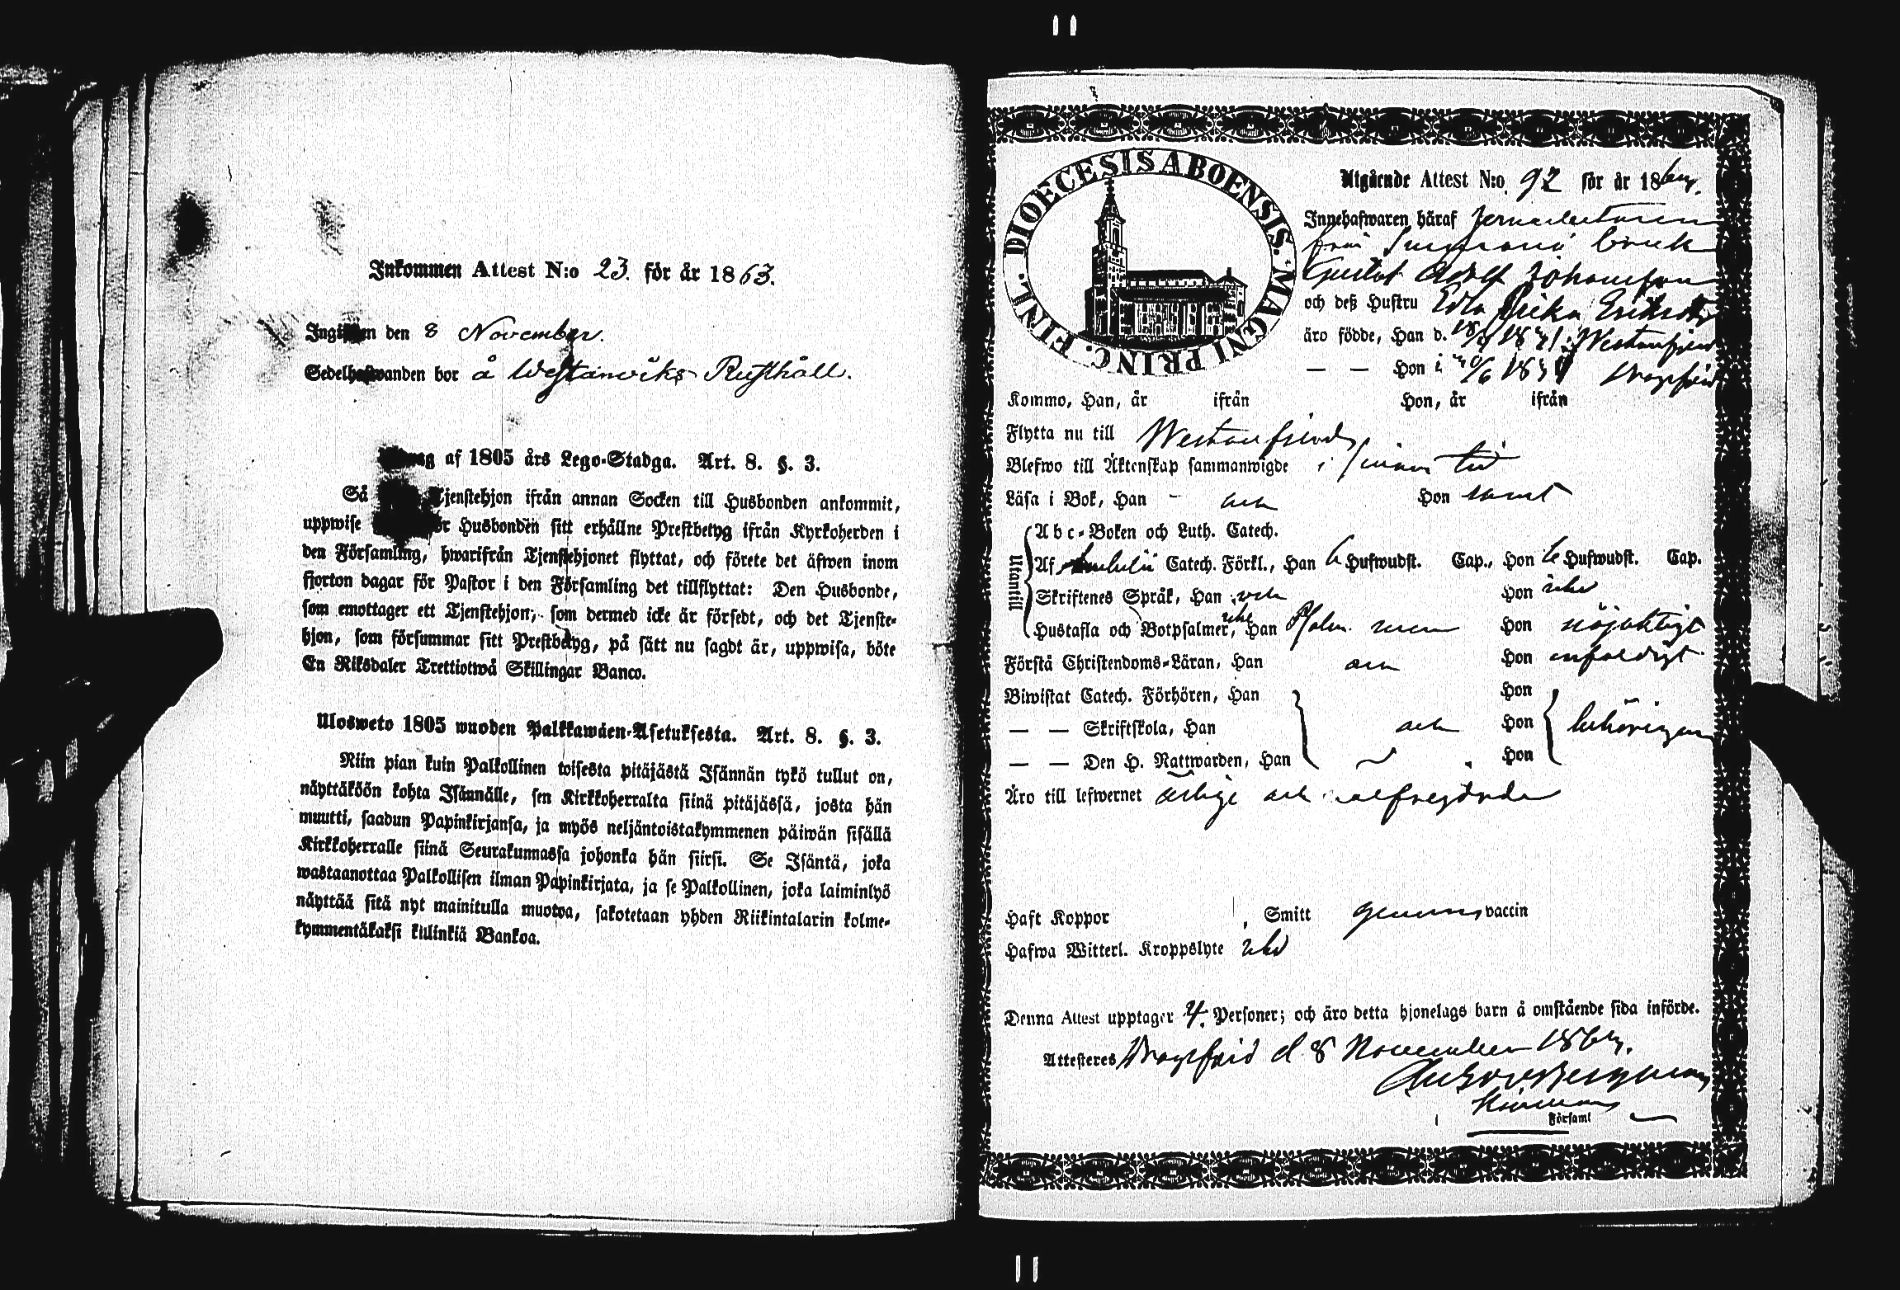 Inkommen Attest N:o 23. för år 1863.
Ingifven den 8 November.
Sedelhafwanden bor å Westanwiks Rusthåll.
af 1805 års Lego-Stadga. Art. 8. §. 3.
Så Tjenstehjon ifrån annan Socken till Husbonden ankommit,
uppwise Husbonden sitt erhållne Prestbetyg ifrån Kyrkoherden i
den Församling, hwarifrån Tjenstehjonet flyttat, och förete det äfwen inom
fjorton dagar för Pastor i den Församling det tillflyttat: Den Husbonde,
som emottager ett Tjenstehjon, som dermed icke är försedt, och det Tjenste-
hjon, som försummar sitt Prestbetyg, på sätt nu sagdt är, uppwisa, böte
En Riksdaler Trettiotwå Skillingar Banco.
Ulosweto 1805 wuoden Palkkawäen-Asetuksesta. Art. 8. §. 3.
Niin pian kuin Palkollinen toisesta pitäjästä Isännän tykö tullut on,
näyttäköön kohta Isännälle, sen Kirkkoherralta siinä pitäjässä, josta hän
muutti, saadun Papinkirjansa, ja myös neljäntoistakymmenen päiwän sisällä
Kirkkoherralle siinä Seurakunnassa johonka hän siirsi. Se Isäntä, joka
wastaanottaa Palkollisen ilman Papinkirjata, ja se Palkollinen, joka laiminlyö
näyttää sitä nyt mainitulla muotoa, sakotetaan yhden Riikintalarin kolme-
kymmentäkaksi killinkiä Bankoa.
DIOECESIS ABOENSIS. MAGNI PRINC. FINL.
Utgående Attest N:o 92 för år 18
Innehafwaren häraf
från bruk
Gustaf Adolf Johansson
och deß Hustru Edla Erika
äro födde, Han d.
— — Hon i
Kommo, Han, år ifrån Hon, år ifrån
Flytta nu till Westanfjerd
Blefwo till Äktenskap sammanwigde i sinom tid
Läsa i Bok, Han Hon
Utantill
Abc-Boken och Luth. Catech.
Af Catech. Förkl., Han 6 Hufwudst. Cap., Hon 6 Hufwudst. Cap.
Skriftenes Språk, Han och Hon
Hustafla och Botpsalmer, Han Hon nöjaktigt
Förstå Christendoms-Läran, Han och Hon enfaldigt
Biwistat Catech. Förhören, Han Hon
— — Skriftskola, Han och Hon behörigen
— — Den H. Nattwarden, Han Hon
Äro till lefwernet ärlige och välfrejdade
Haft Koppor , Smitt genom vaccin
Hafwa Witterl. Kroppslyte
Denna Attest upptager 4. Personer; och äro detta hjonelags barn å omstående sida införde.
Attesteres Dragsfjärd d. 8 November
Församl